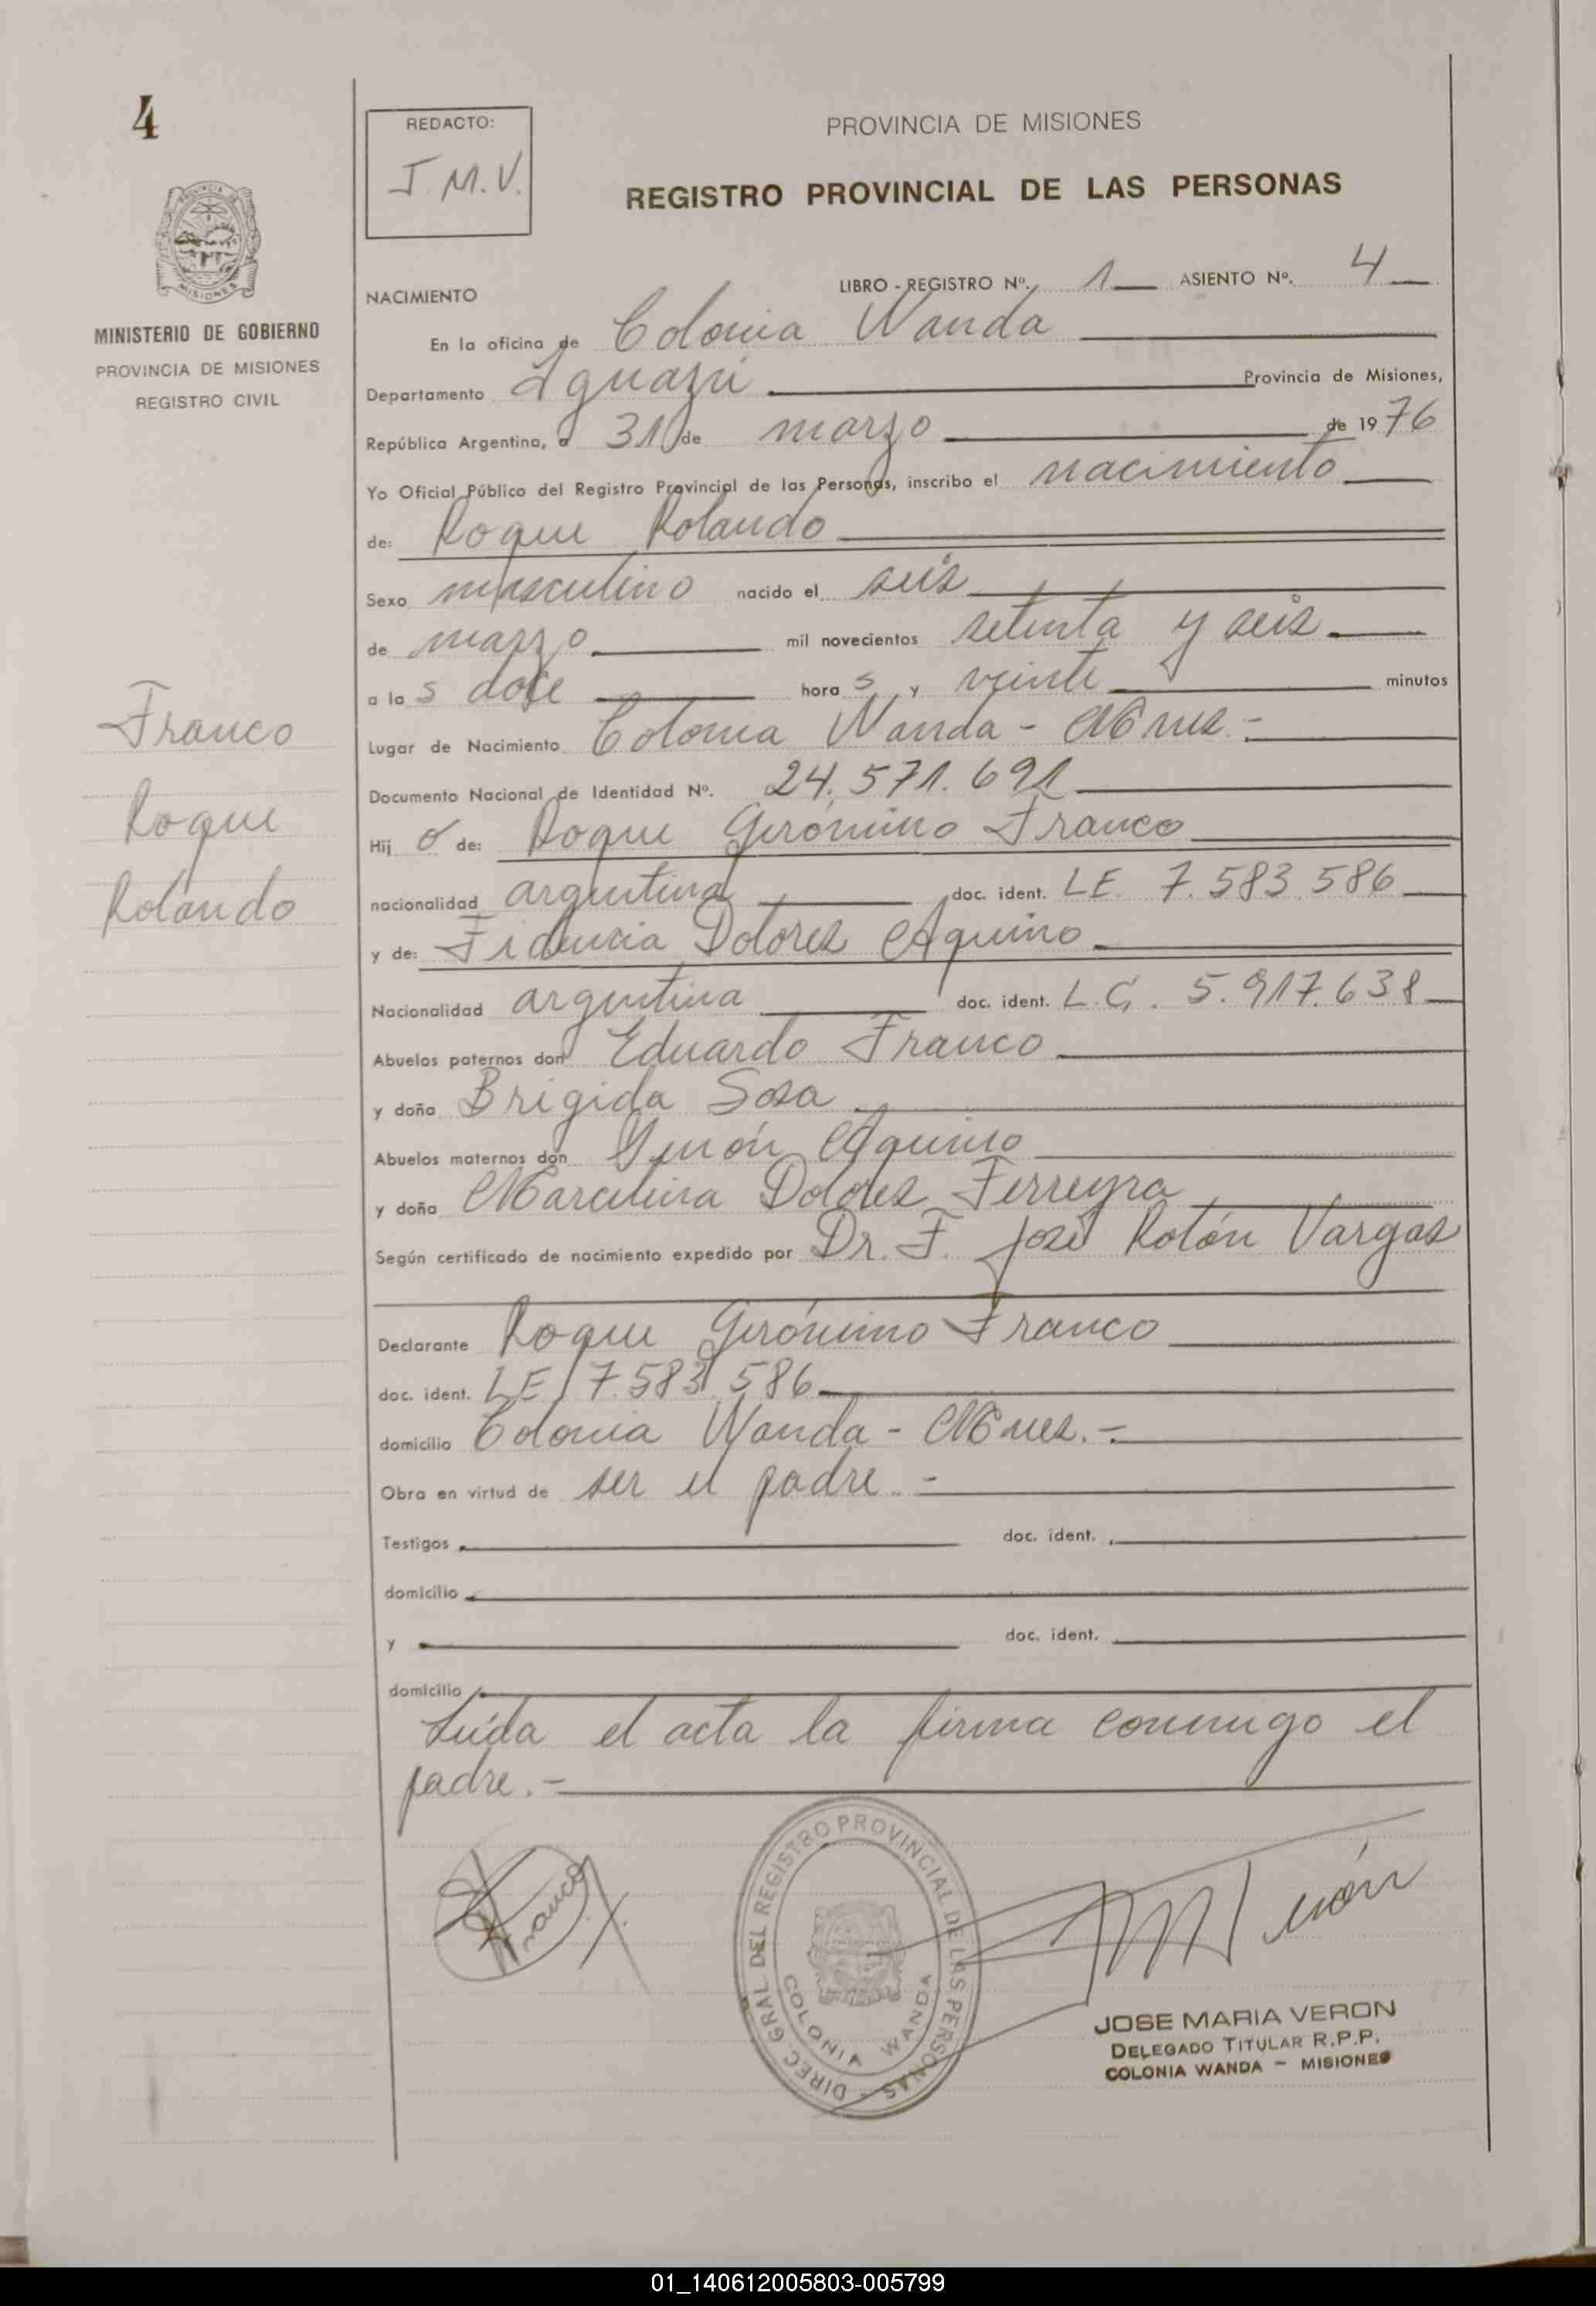 4
REDACTO:
J.M.V.
PROVINCIA DE MISIONES
REGISTRO PROVINCIAL DE LAS PERSONAS
MINISTERIO DE GOBIERNO
PROVINCIA DE MISIONES
REGISTRO CIVIL
NACIMIENTO
LIBRO - REGISTRO Nº. 1 ASIENTO Nº. 4
En la oficina de Colonia Wanda
Departamento Iguazú Provincia de Misiones,
República Argentina, a 31 de marzo de 1976
Yo Oficial Público del Registro Provincial de las Personas, inscribo el nacimiento
de: Roque Rolando
Sexo masculino nacido el seis
de marzo mil novecientos setenta y seis
a las doce horas y veinte minutos
Lugar de Nacimiento Colonia Wanda - Mnes.-
Documento Nacional de Identidad Nº. 24.571.691
Hijo de: Roque Gerónimo Franco
nacionalidad argentina doc. ident. LE. 7.583.586
y de: Fidencia Dolores Aquino
Nacionalidad argentina doc. ident. L.C. 5.917.638
Abuelos paternos don Eduardo Franco
y doña Brigida Sosa
Abuelos maternos don Simón Aquino
y doña Marcelina Dolores Ferreyra
Según certificado de nacimiento expedido por Dr. F. José Rolón Vargas
Declarante Roque Gerónimo Franco
doc. ident. LE 7.583.586
domicilio Colonia Wanda - Mnes.-
Obra en virtud de ser el padre.-
Testigos doc. ident.
domicilio
y doc. ident.
domicilio
Leída el acta la firma conmigo el
padre.-
Franco
Roque
Rolando
Franco
DIREC. GRAL. DEL REGISTRO PROVINCIAL DE LAS PERSONAS
COLONIA WANDA
JOSE MARIA VERON
DELEGADO TITULAR R.P.P.
COLONIA WANDA - MISIONES
01_140612005803-005799